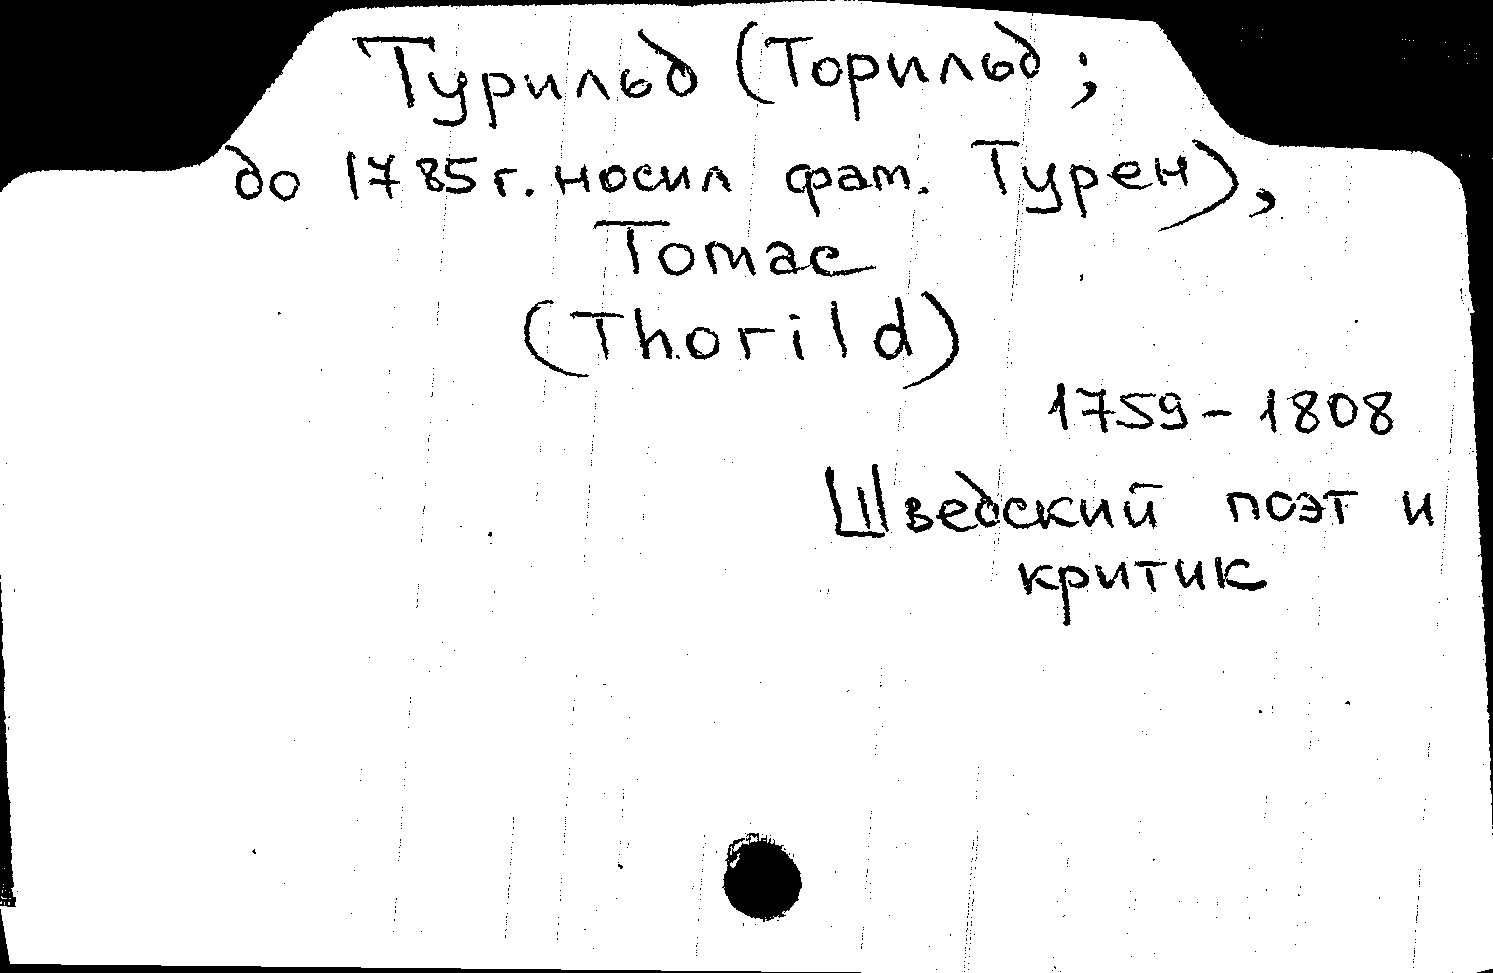 Турильд (Торильд;
до 1785 г. носил фам. Турен),
Томас
(Thorild)
1759-1808
Шведский поэт и
критик